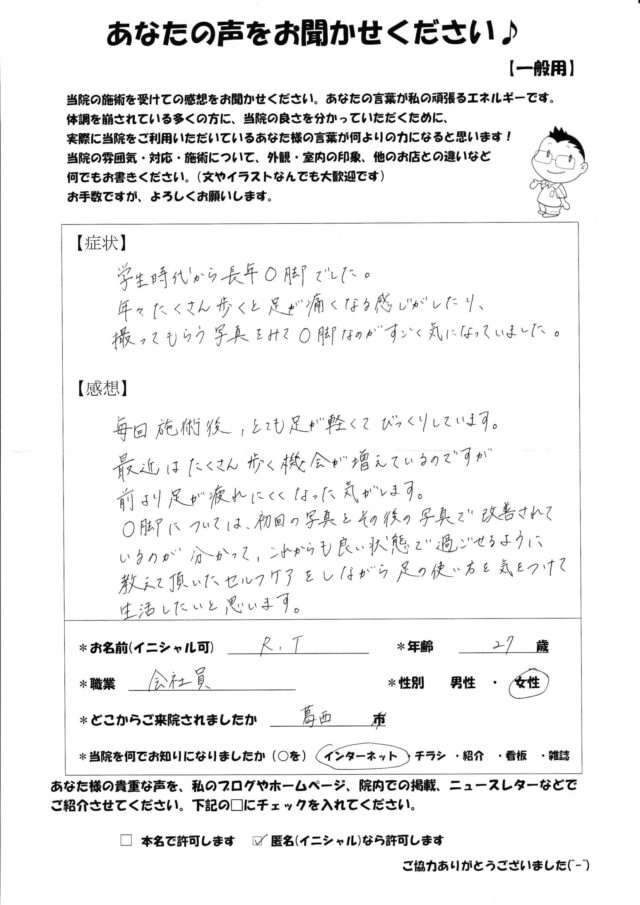 あなたの声をお聞かせください♪
【一般用】
当院の施術を受けての感想をお聞かせください。あなたの言葉が私の頑張るエネルギーです。
体調を崩されている多くの方に、当院の良さを分かっていただくために、
実際に当院をご利用いただいているあなた様の言葉が何よりの力になると思います！
当院の雰囲気・対応・施術について、外観・室内の印象、他のお店との違いなど
何でもお書きください。(文やイラストなんでも大歓迎です)
お手数ですが、よろしくお願いします。
【症状】
学生時代から長年O脚でした。
年々たくさん歩くと足が痛くなる感じがしたり、
撮ってもらう写真をみてO脚なのがすごく気になっていました。
【感想】
毎回施術後、とても足が軽くてびっくりしています。
最近はたくさん歩く機会が増えているのですが
前より足が疲れにくくなった気がします。
O脚については、初回の写真とその後の写真で改善されて
いるのが分かって、これからも良い状態で過ごせるように
教えて頂いたセルフケアをしながら足の使い方を気をつけて
生活したいと思います。
*お名前(イニシャル可) R.T *年齢 27 歳
*職業 会社員 *性別 男性 ・ 女性
*どこからご来院されましたか 葛西 市
*当院を何でお知りになりましたか (○を) インターネット・チラシ ・紹介 ・看板 ・雑誌
あなた様の貴重な声を、私のブログやホームページ、院内での掲載、ニュースレターなどで
ご紹介させてください。下記の□にチェックを入れてください。
□ 本名で許可します ☑ 匿名(イニシャル)なら許可します
ご協力ありがとうございました(^-^)